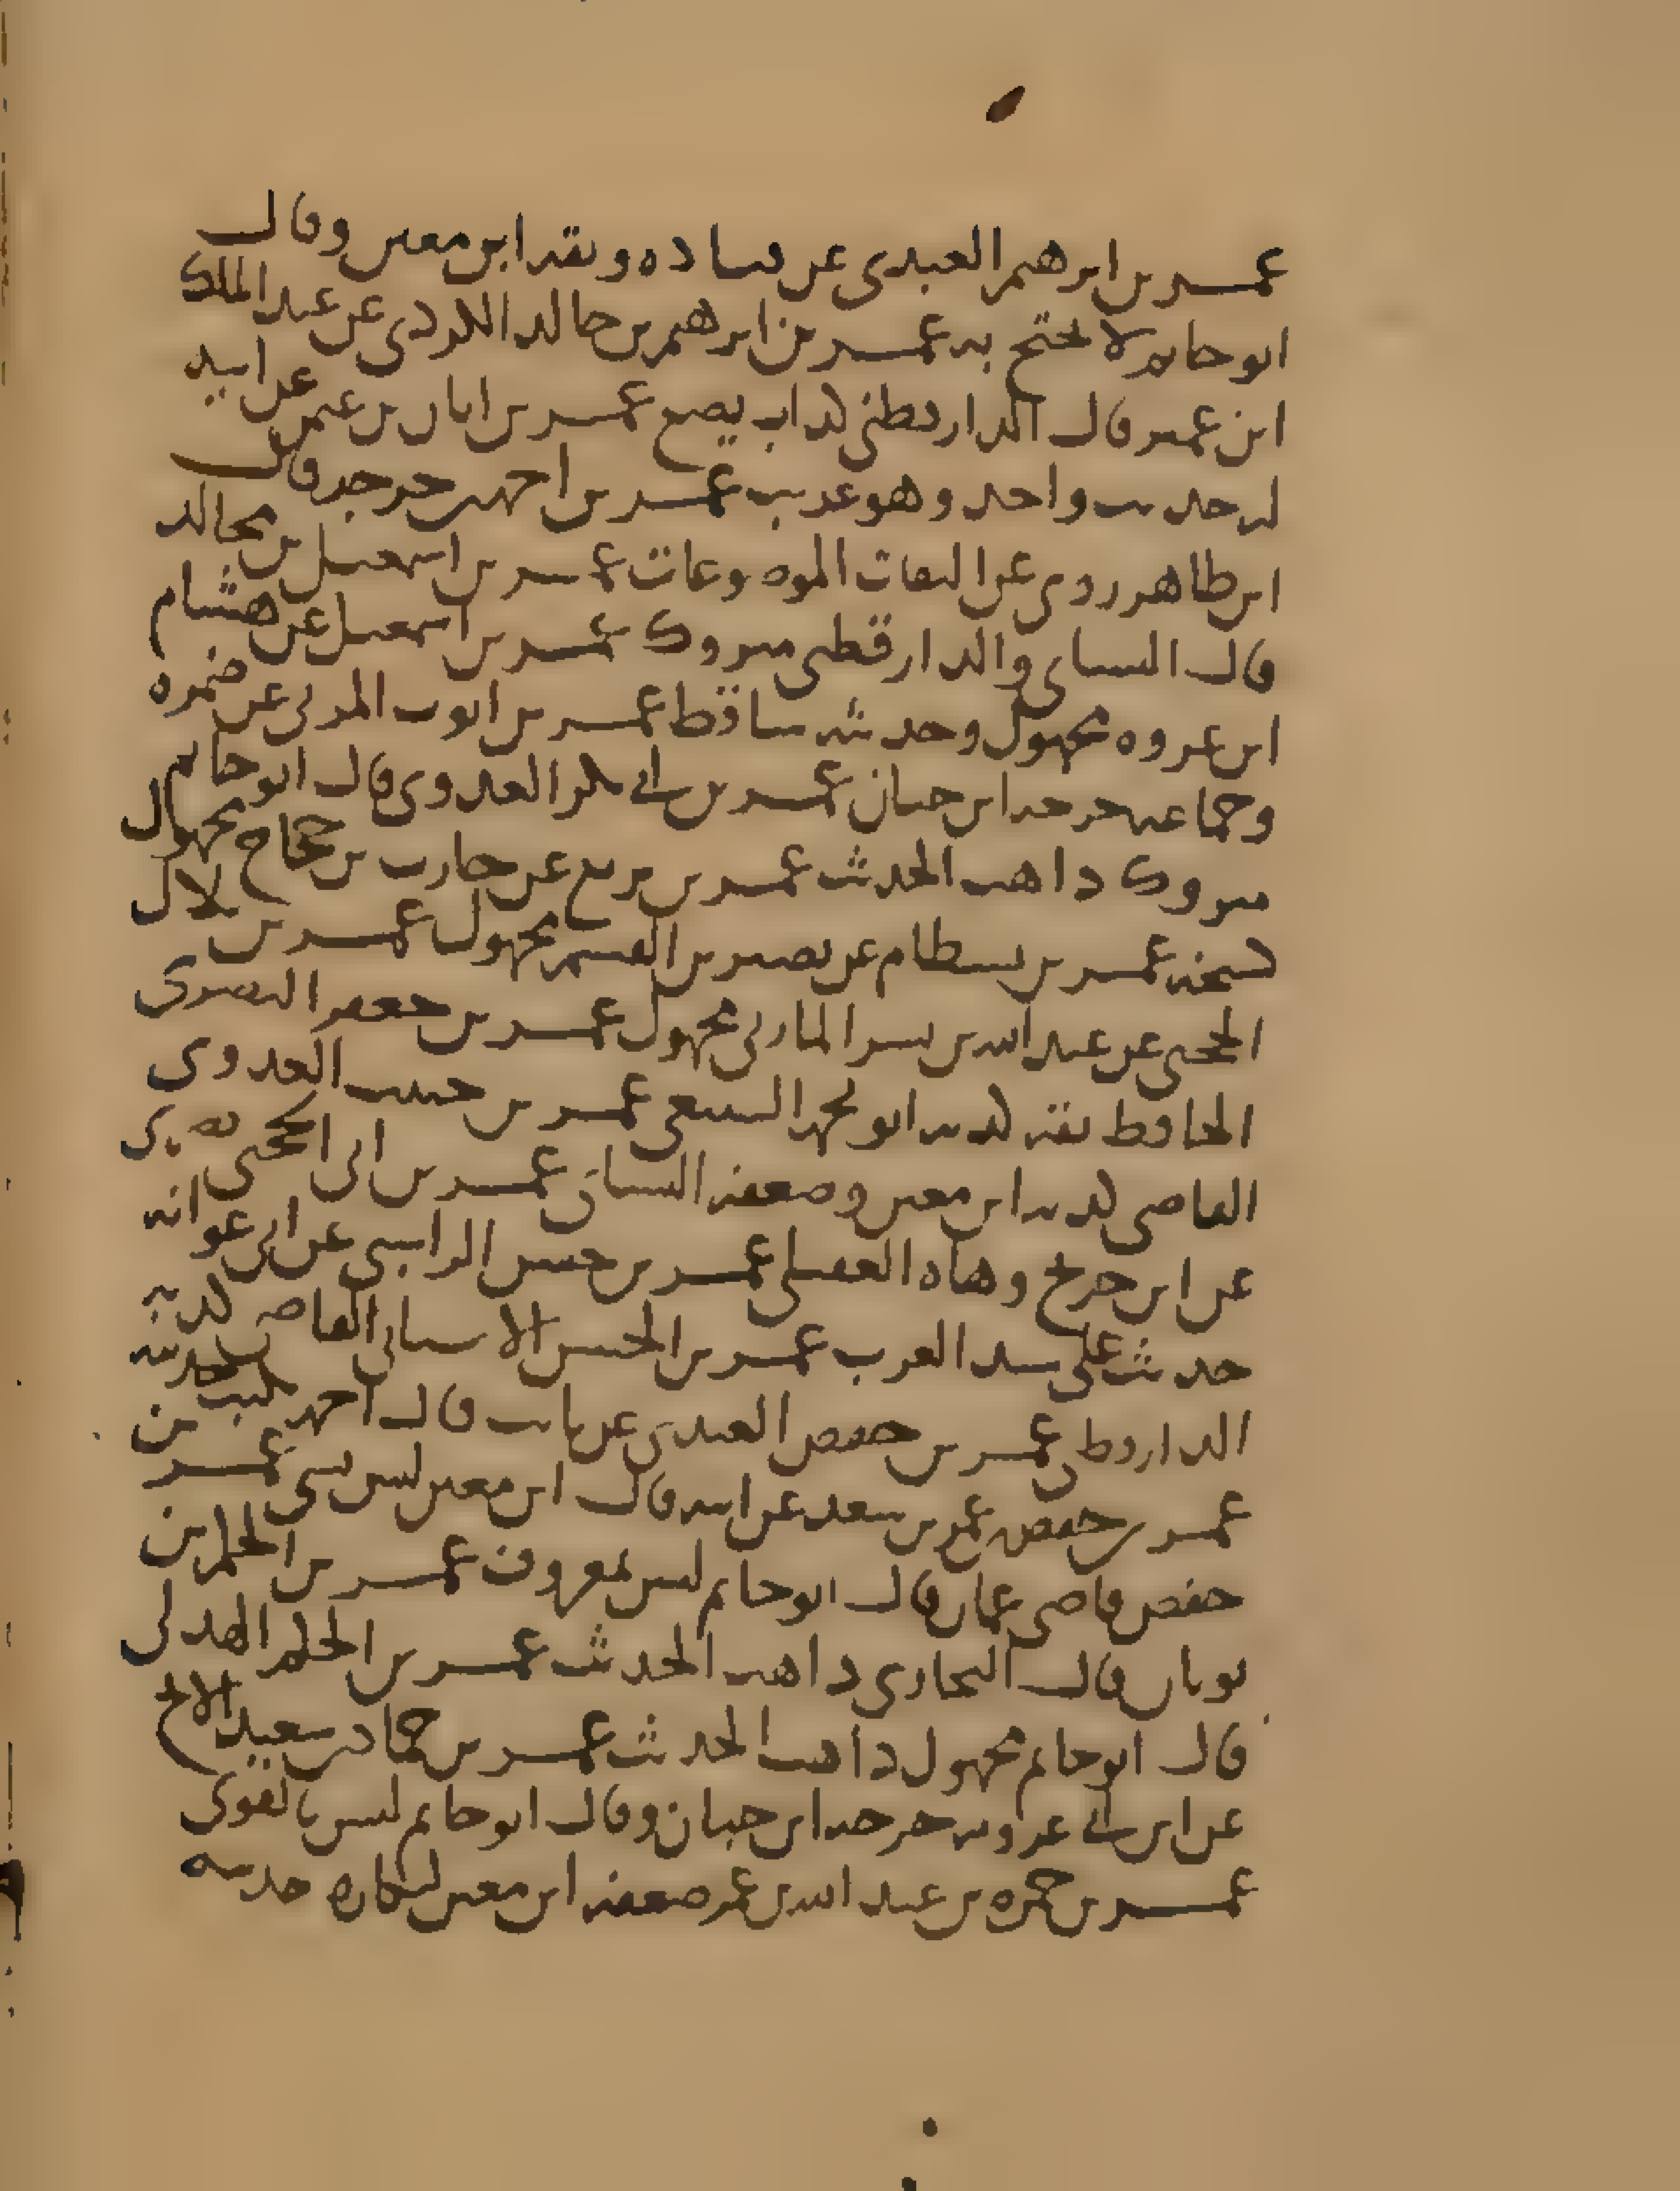 عمر بن ابرهيم العبدي عن قتاده وثقه ابن معين وقال
ابو حاتم لا يحتج به عمر بن ابرهيم بن خالد الكردي عن عبد الملك
ابن عمير قال الدارقطني كذاب يضع عمر بن ابان بن عثمن عن ابيه
له حديث واحد وهو غريب عمر بن احمد بن جرجه قال
ابن طاهر روى عن الثقات الموضوعات عمر بن اسمعيل بن مجالد
قال النساي والدارقطني متروك عمر بن اسمعيل عن هشام
ابن عروه مجهول وحديثه ساقط عمر بن ايوب المزني عن ضمره
وجماعه جرحه ابن حبان عمر بن ابي بكر العدوي قال ابو حاتم
متروك ذاهب الحديث عمر بن بزيع عن حارب بن حجاج مجهول
كشيخه عمر بن بسطام عن نصير بن القسم مجهول عمر بن بلال
الجمحي عن عبد الله بن بسر المازني مجهول عمر بن جعفر البصري
الحافظ ثقه كذبه ابو محمد السبيعي عمر بن حبيب العدوي
القاضي كذبه ابن معين وضعفه النسائي عمر بن ابي الحجى بصري
عن ابن جريج وهاه العقيلي عمر بن حسن الراسبي عن ابي عوانه
حديث علي سيد العرب عمر بن الحسن الاشناني القاضي كذبه
الدارقطني عمر بن حفص العبدي عن ثابت قال احمد كتبت حديثه من
عمر بن حفص عمر بن سعد عن ابيه قال ابن معين ليس بشي عمر بن
حفص قاضي عمان قال ابو حاتم ليس بمعروف عمر بن الحكم بن
ثوبان قال البخاري ذاهب الحديث عمر بن الحكم الهذلي
قال ابو حاتم مجهول ذاهب الحديث عمر بن حماد بن سعيد الابح
عن ابن ابي عروبه جرحه ابن حبان وقال ابو حاتم ليس بالقوي
عمر بن حمزه بن عبد الله بن عمر ضعفه ابن معين لنكاره حديثه